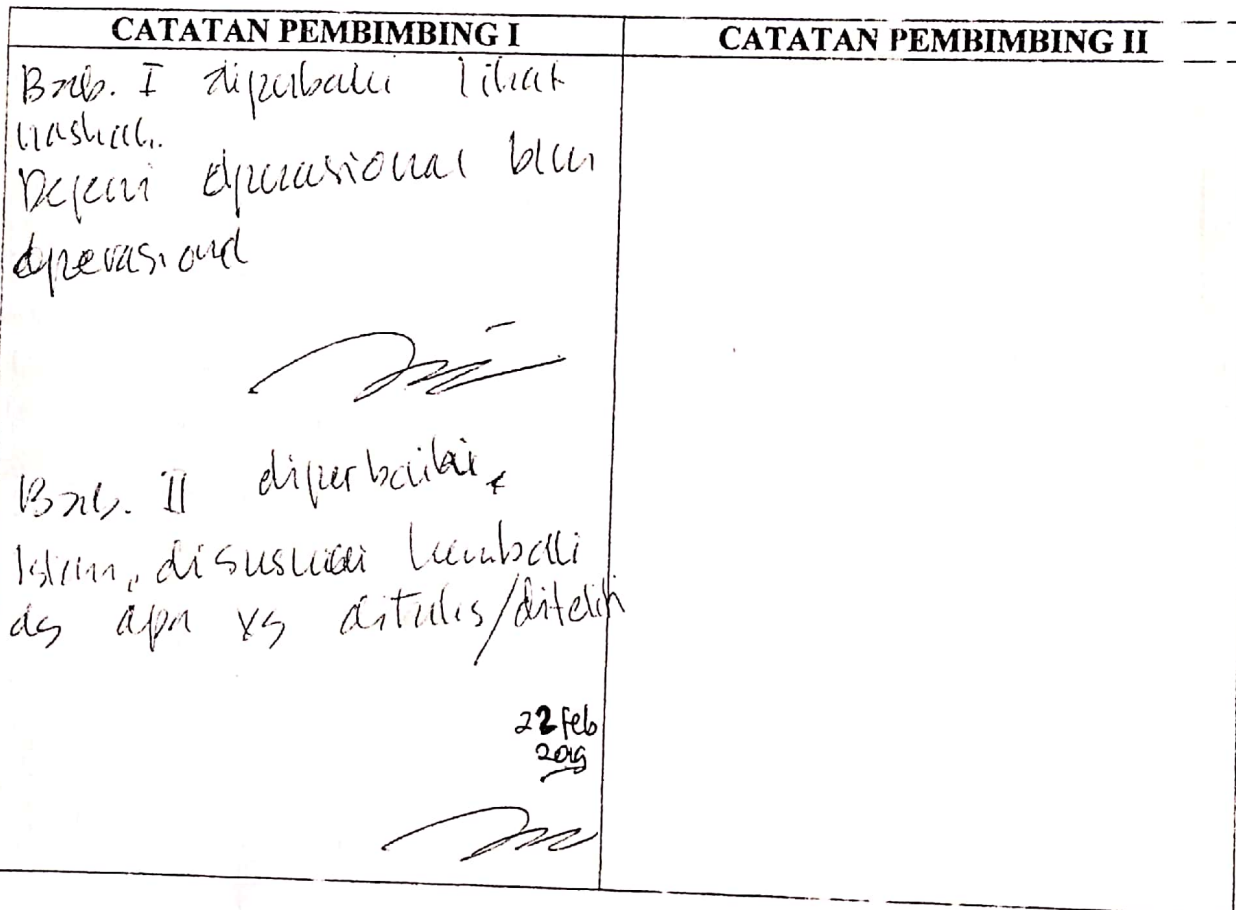 CATATAN PEMBIMBING I
CATATAN PEMBIMBING II
Bab. I diperbaiki lihat
naskah.
Defeni operasional blm
operasional
Bab. II diperbaiki,
disusuai kembali
dg apa yg ditulis/diteliti
22 Feb
2019